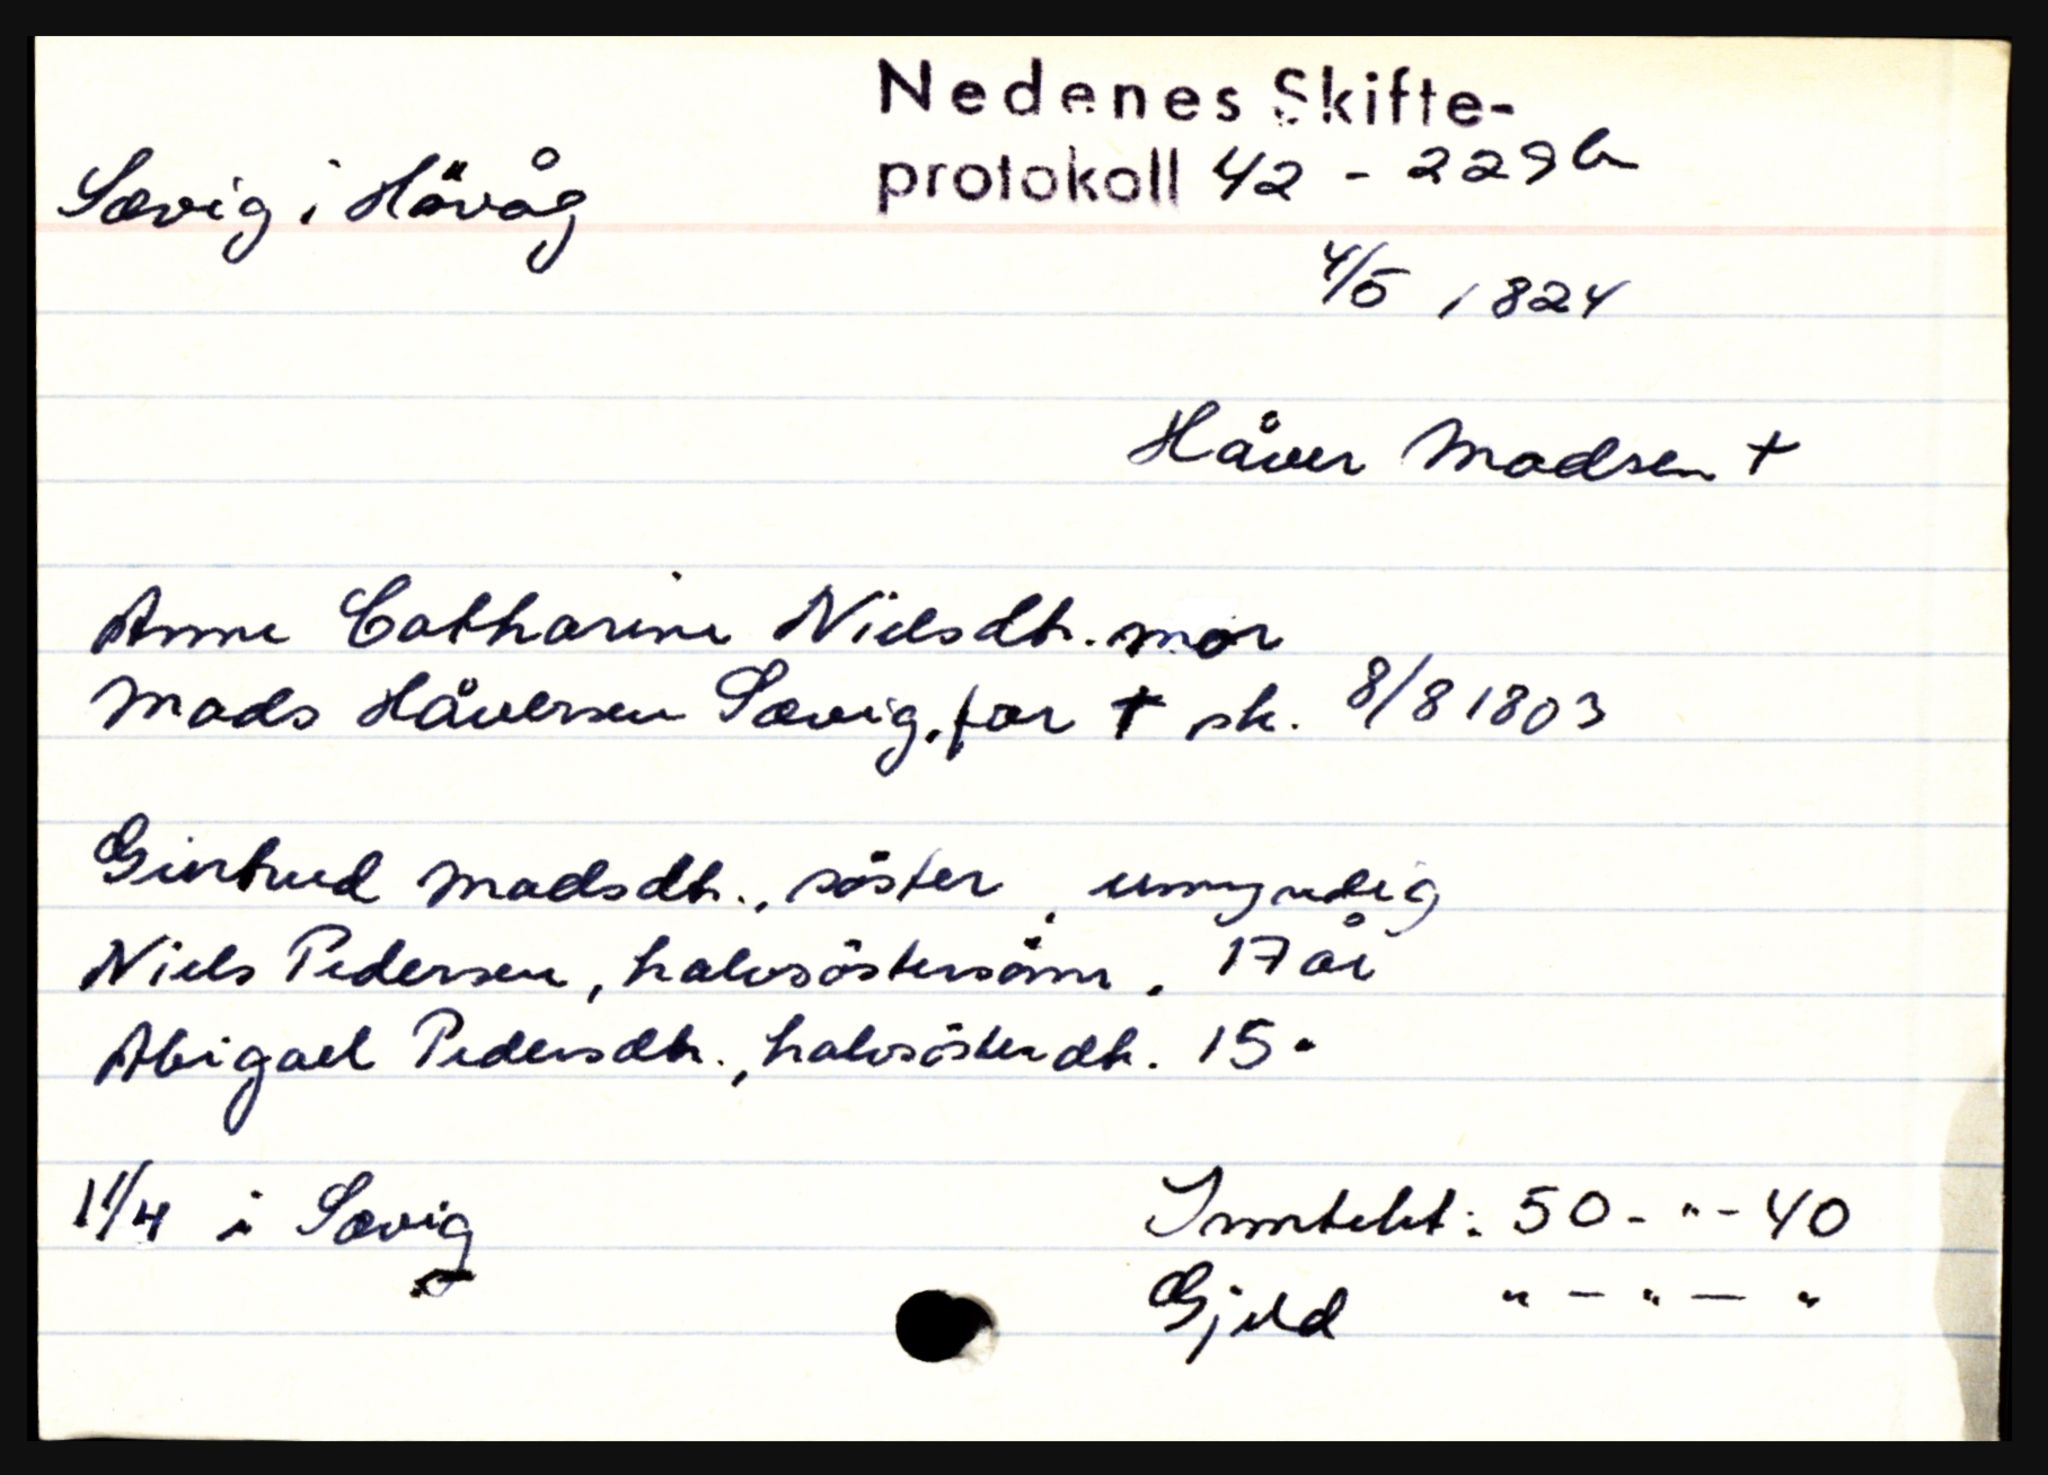 Nedenes Skifte-
protokoll 42 - 229 b
Sævig i Hövåg
4/5 1824
Håver Madsen †
Anne Catharine Nielsdtr. mor
Mads Håversen Sævig, far † sk. 8/8 1803
Giertrud Madsdtr., söster, umyndig
Niels Pedersen, halvsöstersönn, 17 år
Abigael Pedersdtr., halvsösterdtr. 15 "
11/4 i Sævig
Inntekt: 50 - " - 40
Gjeld " - " - "